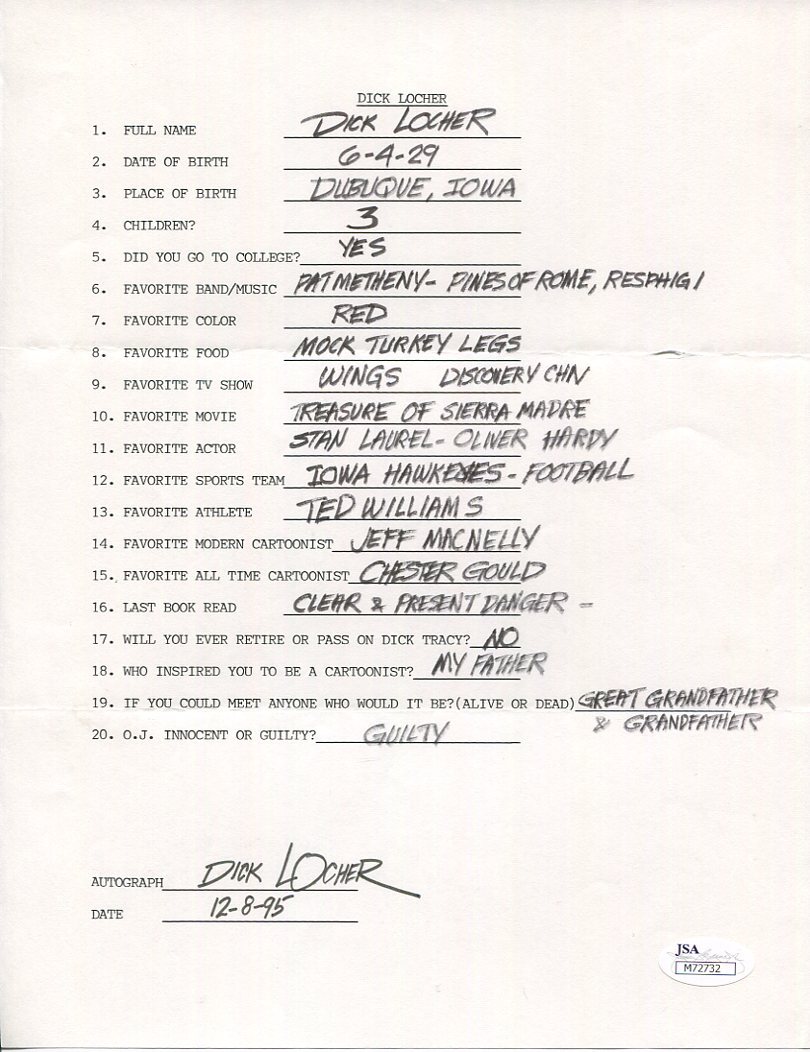 DICK LOCHER
1. FULL NAME DICK LOCHER
2. DATE OF BIRTH 6-4-29
3. PLACE OF BIRTH DUBUQUE, IOWA
4. CHILDREN? 3
5. DID YOU GO TO COLLEGE? YES
6. FAVORITE BAND/MUSIC PAT METHENY- PINES OF ROME, RESPHIGI
7. FAVORITE COLOR RED
8. FAVORITE FOOD MOCK TURKEY LEGS
9. FAVORITE TV SHOW WINGS DISCOVERY CHN
10. FAVORITE MOVIE TREASURE OF SIERRA MADRE
11. FAVORITE ACTOR STAN LAUREL- OLIVER HARDY
12. FAVORITE SPORTS TEAM IOWA HAWKEYES - FOOTBALL
13. FAVORITE ATHLETE TED WILLIAMS
14. FAVORITE MODERN CARTOONIST JEFF MACNELLY
15. FAVORITE ALL TIME CARTOONIST CHESTER GOULD
16. LAST BOOK READ CLEAR & PRESENT DANGER -
17. WILL YOU EVER RETIRE OR PASS ON DICK TRACY? NO
18. WHO INSPIRED YOU TO BE A CARTOONIST? MY FATHER
19. IF YOU COULD MEET ANYONE WHO WOULD IT BE?(ALIVE OR DEAD) GREAT GRANDFATHER
& GRANDFATHER
20. O.J. INNOCENT OR GUILTY? GUILTY
AUTOGRAPH DICK LOCHER
DATE 12-8-95
JSA
M72732